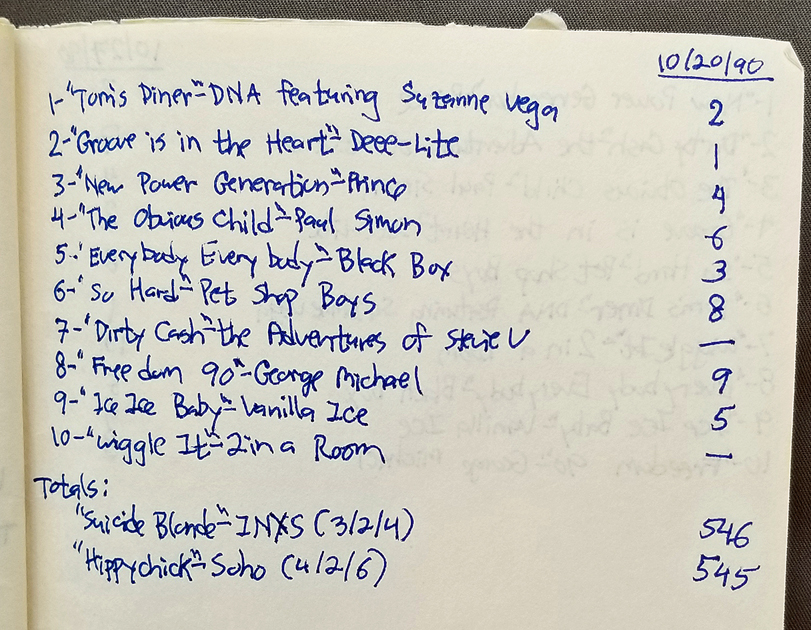 10/20/90
1-"Tom's Diner"-DNA featuring Suzanne Vega 2
2-"Groove is in the Heart"-Deee-Lite 1
3-"New Power Generation"-Prince 4
4-"The Obvious Child"-Paul Simon 6
5-"Everybody Everybody"-Black Box 3
6-"So Hard"-Pet Shop Boys 8
7-"Dirty Cash"-the Adventures of Stevie V —
8-"Freedom 90"-George Michael 9
9-"Ice Ice Baby"-Vanilla Ice 5
10-"Wiggle It"-2 in a Room —
Totals:
"Suicide Blonde"-INXS (3/2/4) 546
"Hippychick"-Soho (4/2/6) 545